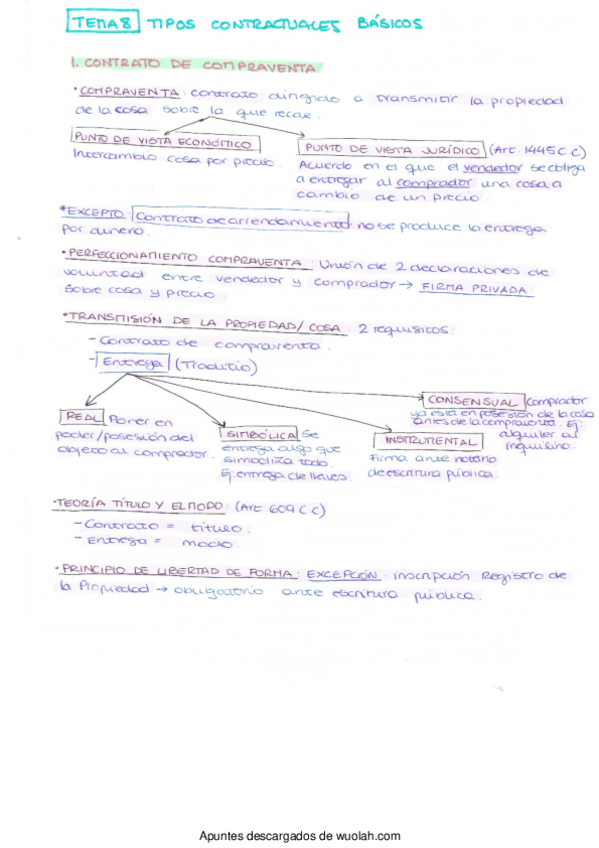 TEMA 8 TIPOS CONTRACTUALES BÁSICOS
1. CONTRATO DE COMPRAVENTA
· COMPRAVENTA: contrato dirigido a transmitir la propiedad
de la cosa sobre la que recae.
PUNTO DE VISTA ECONÓMICO
Intercambio cosa por precio.
PUNTO DE VISTA JURÍDICO (Art. 1445 C.C)
Acuerdo en el que el vendedor se obliga
a entregar al comprador una cosa a
cambio de un precio
*EXCEPTO: Contrato de arrendamiento: no se produce la entrega
por dinero.
· PERFECCIONAMIENTO COMPRAVENTA: Unión de 2 declaraciones de
voluntad entre vendedor y comprador → FIRMA PRIVADA
sobre cosa y precio.
*TRANSMISIÓN DE LA PROPIEDAD/COSA: 2 requisitos:
- Contrato de compraventa.
- Entrega (Traditio)
REAL Poner en
poder/posesión del
objeto al comprador.
SIMBÓLICA Se
entrega algo que
simboliza todo.
Ej. entrega de llaves.
CONSENSUAL Comprador
ya está en posesión de la cosa
antes de la compraventa. Ej:
alquiler al
inquilino.
INSTRUMENTAL
Firma ante notario
de escritura pública.
· TEORÍA TÍTULO Y EL MODO: (Art. 609 C.C)
- Contrato = título.
- Entrega = modo.
· PRINCIPIO DE LIBERTAD DE FORMA: EXCEPCIÓN: inscripción Registro de
la Propiedad → obligatorio ante escritura pública.
Apuntes descargados de wuolah.com